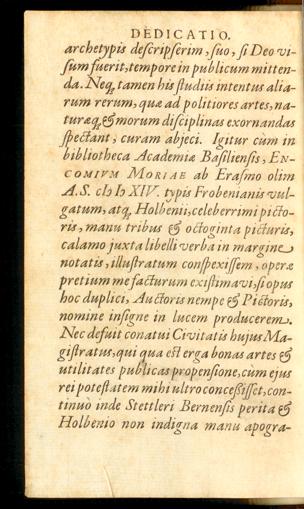 DEDICATIO.
archetypis deſcripſerim, ſuo, ſi Deo vi-
ſum fuerit, tempore in publicum mitten-
da. Neq, tamen his ſtudiis intentus alia-
rum rerum, quæ ad politiores artes, na-
turæq, & morum diſciplinas exornandas
ſpectant, curam abjeci. Igitur cùm in
bibliotheca Academiæ Baſilienſis, EN-
COMIVM MORIAE ab Eraſmo olim
A.S. cIↄ Iↄ XIV. typis Frobenianis vul-
gatum, atq, Holbenii, celeberrimi picto-
ris, manu tribus & octoginta picturis,
calamo juxta libelli verba in margine
notatis, illuſtratum conſpexiſſem, operæ
pretium me facturum exiſtimavi, ſi opus
hoc duplici, Auctoris nempe & Pictoris,
nomine inſigne in lucem producerem.
Nec defuit conatui Civitatis hujus Ma-
giſtratus, qui qua eſt erga bonas artes &
utilitates publicas propenſione, cùm ejus
rei poteſtatem mihi ultro conceßiſſet, con-
tinuò inde Stettleri Bernenſis perita &
Holbenio non indigna manu apogra-